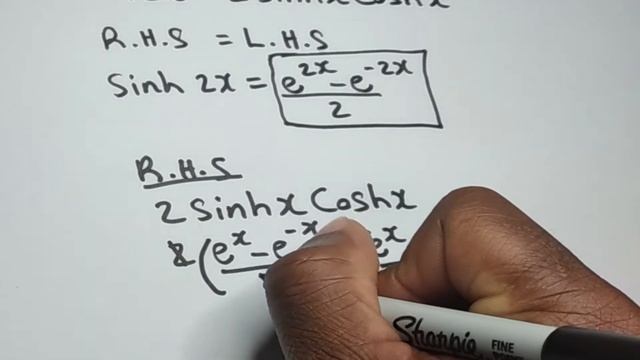 2 sinhx cosh x
R.H.S = L.H.S
Sinh 2x = e^2x - e^-2x / 2
R.H.S
2 Sinhx Coshx
2 (e^x - e^-x e^x
Sharpie
FINE